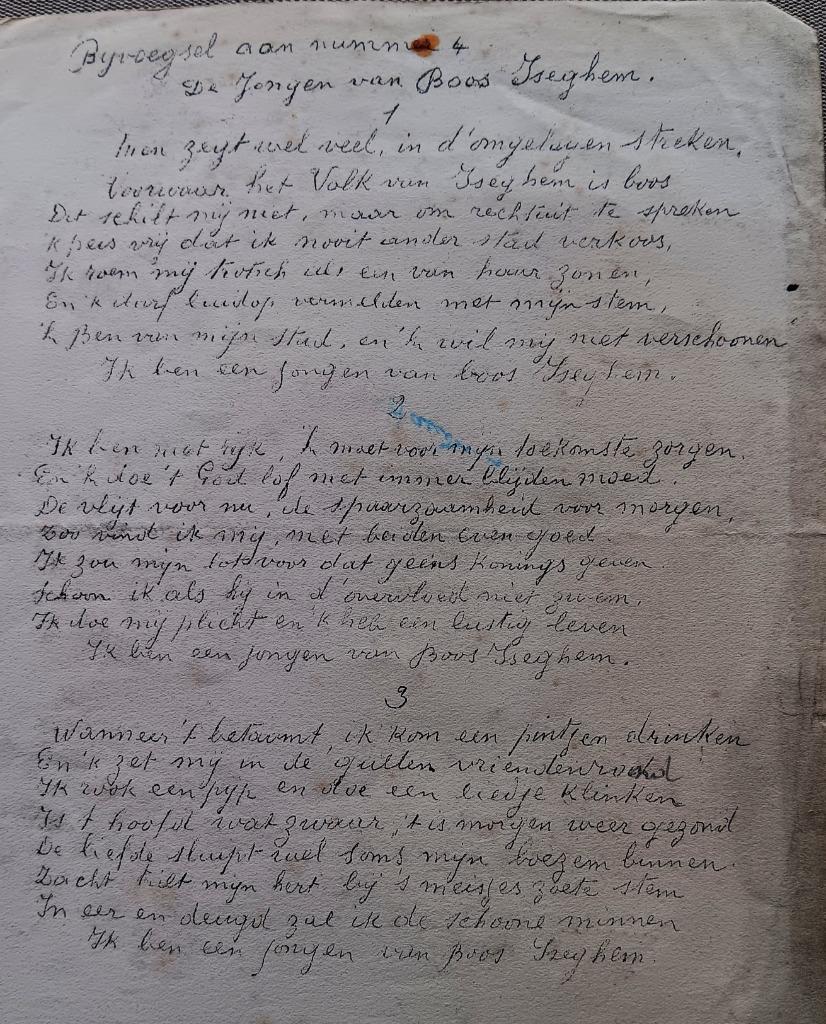 Byvoegsel aan nummer 4
De Jongen van Boos Iseghem.
1
Men zegt wel veel, in d'omgelegen streken,
Voorwaar het Volk van Iseghem is boos
Dit schilt mij niet, maar om rechtuit te spreken
'k peis vrij dat ik nooit ander stad verkoos,
Ik roem mij trotsch als een van haar zonen,
En 'k durf luidop vermelden met mijn stem,
'k Ben van mijn stad, en 'k wil mij niet verschoonen
Ik ben een jongen van boos Iseghem.
2
Ik ben niet rijk, 'k moet voor mijn toekomste zorgen.
En 'k doe 't God lof met immer blijden moed.
De vlijt voor nu, de spaarzaamheid voor morgen,
Zoo vind ik mij, met beiden even goed.
Ik zou mijn lot voor dat geens Konings geven.
Schoon ik als hij in d'overvloed niet zwem.
Ik doe mij plicht en 'k heb een lustig leven
Ik ben een jongen van Boos Iseghem.
3
Wanneer 't betaamt, ik kom een pintjen drinken
En 'k zet mij in de gullen vriendenrond
Ik rook een pijp en doe een liedje klinken
Is 't hoofd wat zwaar, 't is morgen weer gezond
De liefde sluipt wel soms mijn boezem binnen.
Zacht tilt mijn hert bij 's meisjes zoete stem
In eer en deugd zal ik de schoone minnen
Ik ben een jongen van Boos Iseghem.